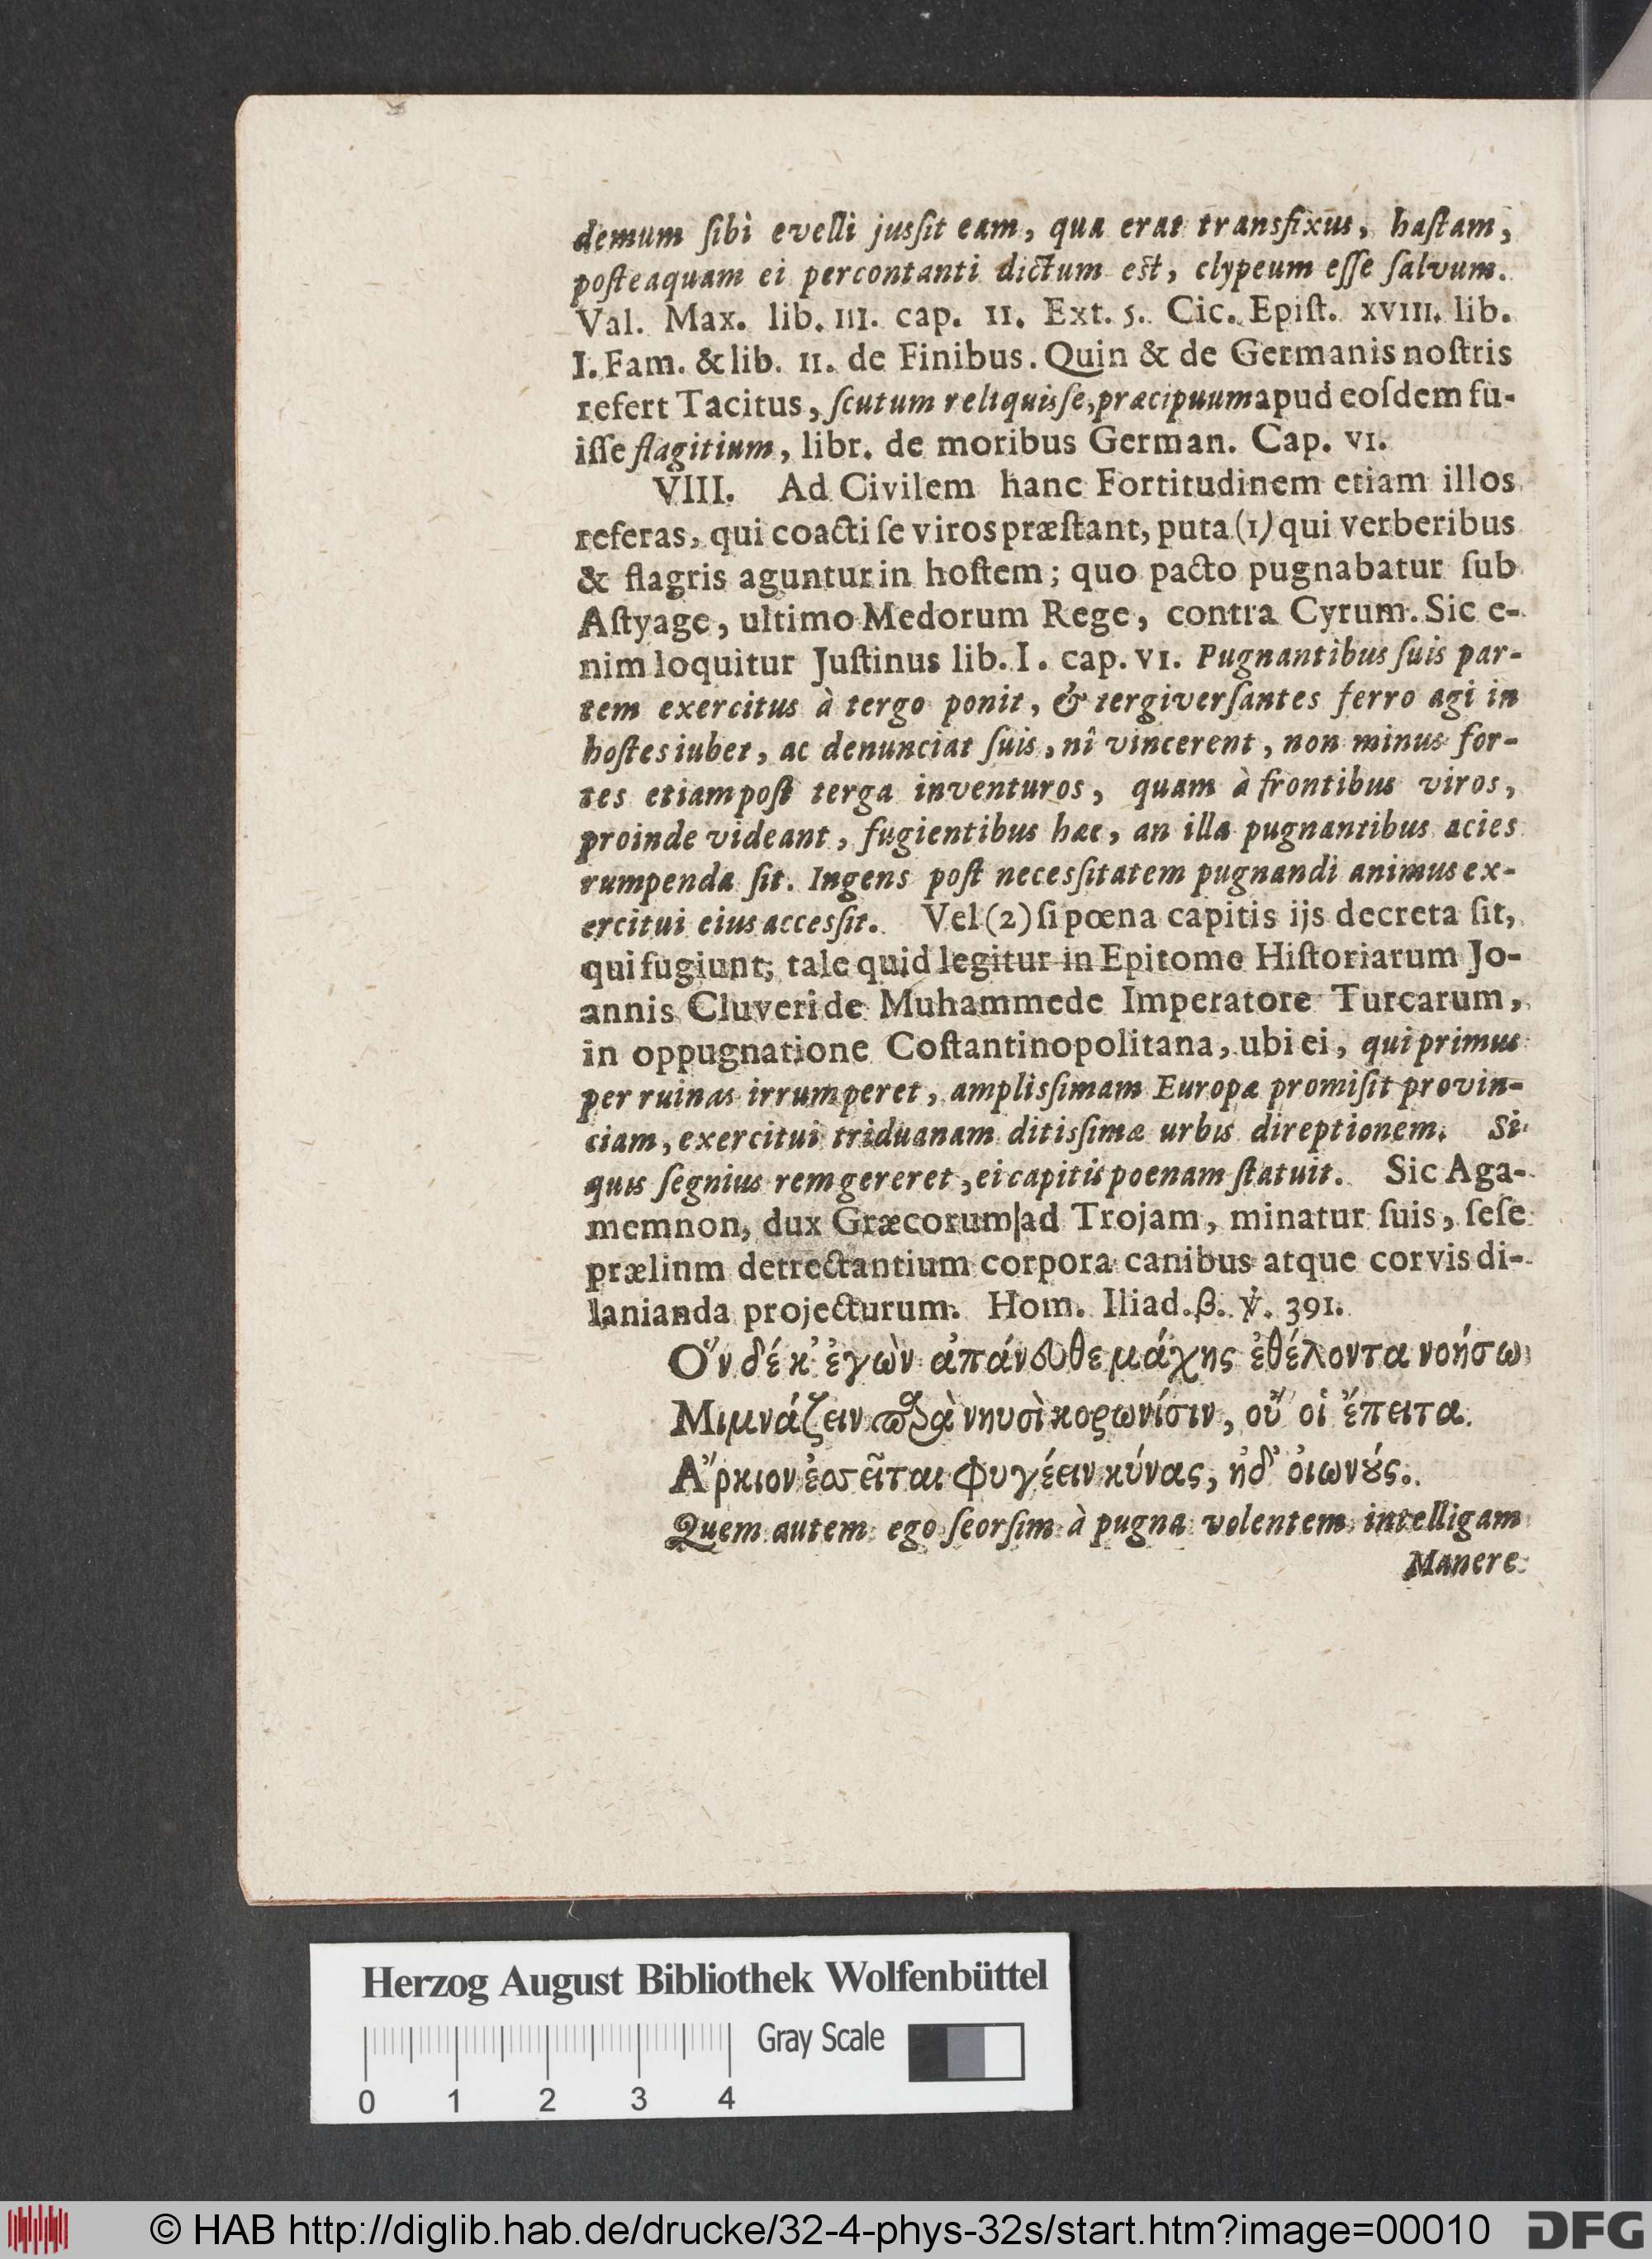 demum ſibì evelli jusſit eam, qua erat transfixus, haſtam,
poſteaquam ei percontanti dictum est, clypeum eſſe ſalvum.
Val. Max. lib. III. cap. II. Ext. 5. Cic. Epiſt. XVIII. lib.
I. Fam. & lib. II. de Finibus. Quin & de Germanis noſtris
refert Tacitus, ſcutum reliquisſe, præcipuum apud eoſdem fu-
iſſe flagitium, libr. de moribus German. Cap. VI.
VIII. Ad Civilem hanc Fortitudinem etiam illos
referas, qui coacti ſe viros præſtant, puta (1) qui verberibus
& flagris aguntur in hoſtem; quo pacto pugnabatur ſub
Aſtyage, ultimo Medorum Rege, contra Cyrum. Sic e-
nim loquitur Juſtinus lib. I. cap. VI. Pugnantibus ſuis par-
tem exercitus à tergo ponit, & tergiverſantes ferro agi in
hoſtes iubet, ac denunciat ſuis, nî vincerent, non minus for-
tes etiam poſt terga inventuros, quam à frontibus viros,
proinde videant, fugientibus hæc, an illa pugnantibus acies
rumpenda ſit. Ingens poſt necesſitatem pugnandi animus ex-
ercitui eius accesſit. Vel (2) ſi pœna capitis ijs decreta ſit,
qui fugiunt; tale quid legitur in Epitome Hiſtoriarum Jo-
annis Cluveri de Muhammede Imperatore Turcarum,
in oppugnatione Coſtantinopolitana, ubi ei, qui primus
per ruinas irrumperet, amplisſimam Europæ promiſit provin-
ciam, exercitui triduanam ditisſimæ urbis direptionem. Si
quis ſegnius rem gereret, ei capitis poenam ſtatuit. Sic Aga-
memnon, dux Græcorum|ad Trojam, minatur ſuis, ſeſe
prælinm detrectantium corpora canibus atque corvis di-
lanianda projecturum. Hom. Iliad. β. ℣. 391.
Ὃν δέ κ' ἐγὼν ἀπάνευθε μάχης ἐθέλοντα νοήσω
Μιμνάζειν παρὰ νηυσὶ κορωνίσιν, οὔ οἱ ἔπειτα
Ἄρκιον ἐσσεῖται φυγέειν κύνας, ἠδ' οἰωνούς.
Quem autem ego ſeorſim à pugna volentem intelligam
Manere
Herzog August Bibliothek Wolfenbüttel
Gray Scale
0 1 2 3 4
© HAB http://diglib.hab.de/drucke/32-4-phys-32s/start.htm?image=00010
DFG